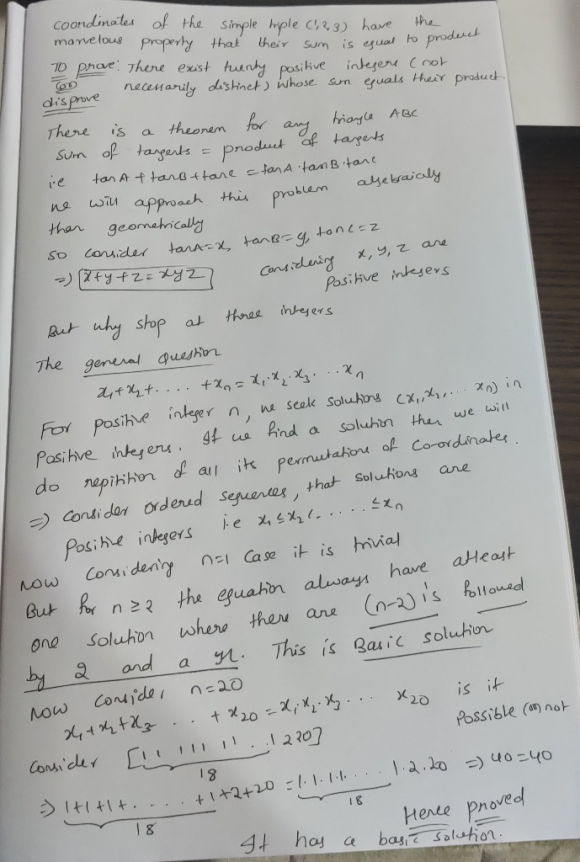 coordinates of the simple triple (1,2,3) have the
marvelous property that their sum is equal to product
TO prove: There exist twenty positive integers (not
(or) necessarily distinct) whose sum equals their product.
disprove
There is a theorem for any triangle ABC
Sum of tangents = product of tangents
i.e tanA + tanB + tanC = tanA · tanB · tanC
we will approach this problem algebraically
than geometrically
so consider tanA=x, tanB=y, tanC=z
⇒) x+y+z = xyz Considering x, y, z are
Positive integers
But why stop at three integers
The general Question
x₁+x₂+ . . . . +xₙ = x₁·x₂·x₃ . . . xₙ
For positive integer n, we seek solutions (x₁,x₂, . . . xₙ) in
Positive integers. If we find a solution then we will
do repitition of all its permutations of Co-ordinates.
⇒) consider ordered sequences, that solutions are
Positive integers i.e x₁ ≤ x₂ ≤ . . . . . ≤ xₙ
Now Considering n=1 Case it is trivial
But for n ≥ 2 the equation always have atleast
one solution where there are (n-2) 1's followed
by 2 and a n. This is Basic solution
Now consider n=20
x₁+x₂+x₃ . . . + x₂₀ = x₁·x₂·x₃ . . . x₂₀ is it
Possible (or) not
Consider [1 1 1 1 1 1 1 . . 1 2 20]
18
⇒ 1+1+1+ . . . . . +1+2+20 = 1·1·1·1· . . . . 1·2·20 ⇒) 40=40
18 18
Hence proved
It has a basic solution.